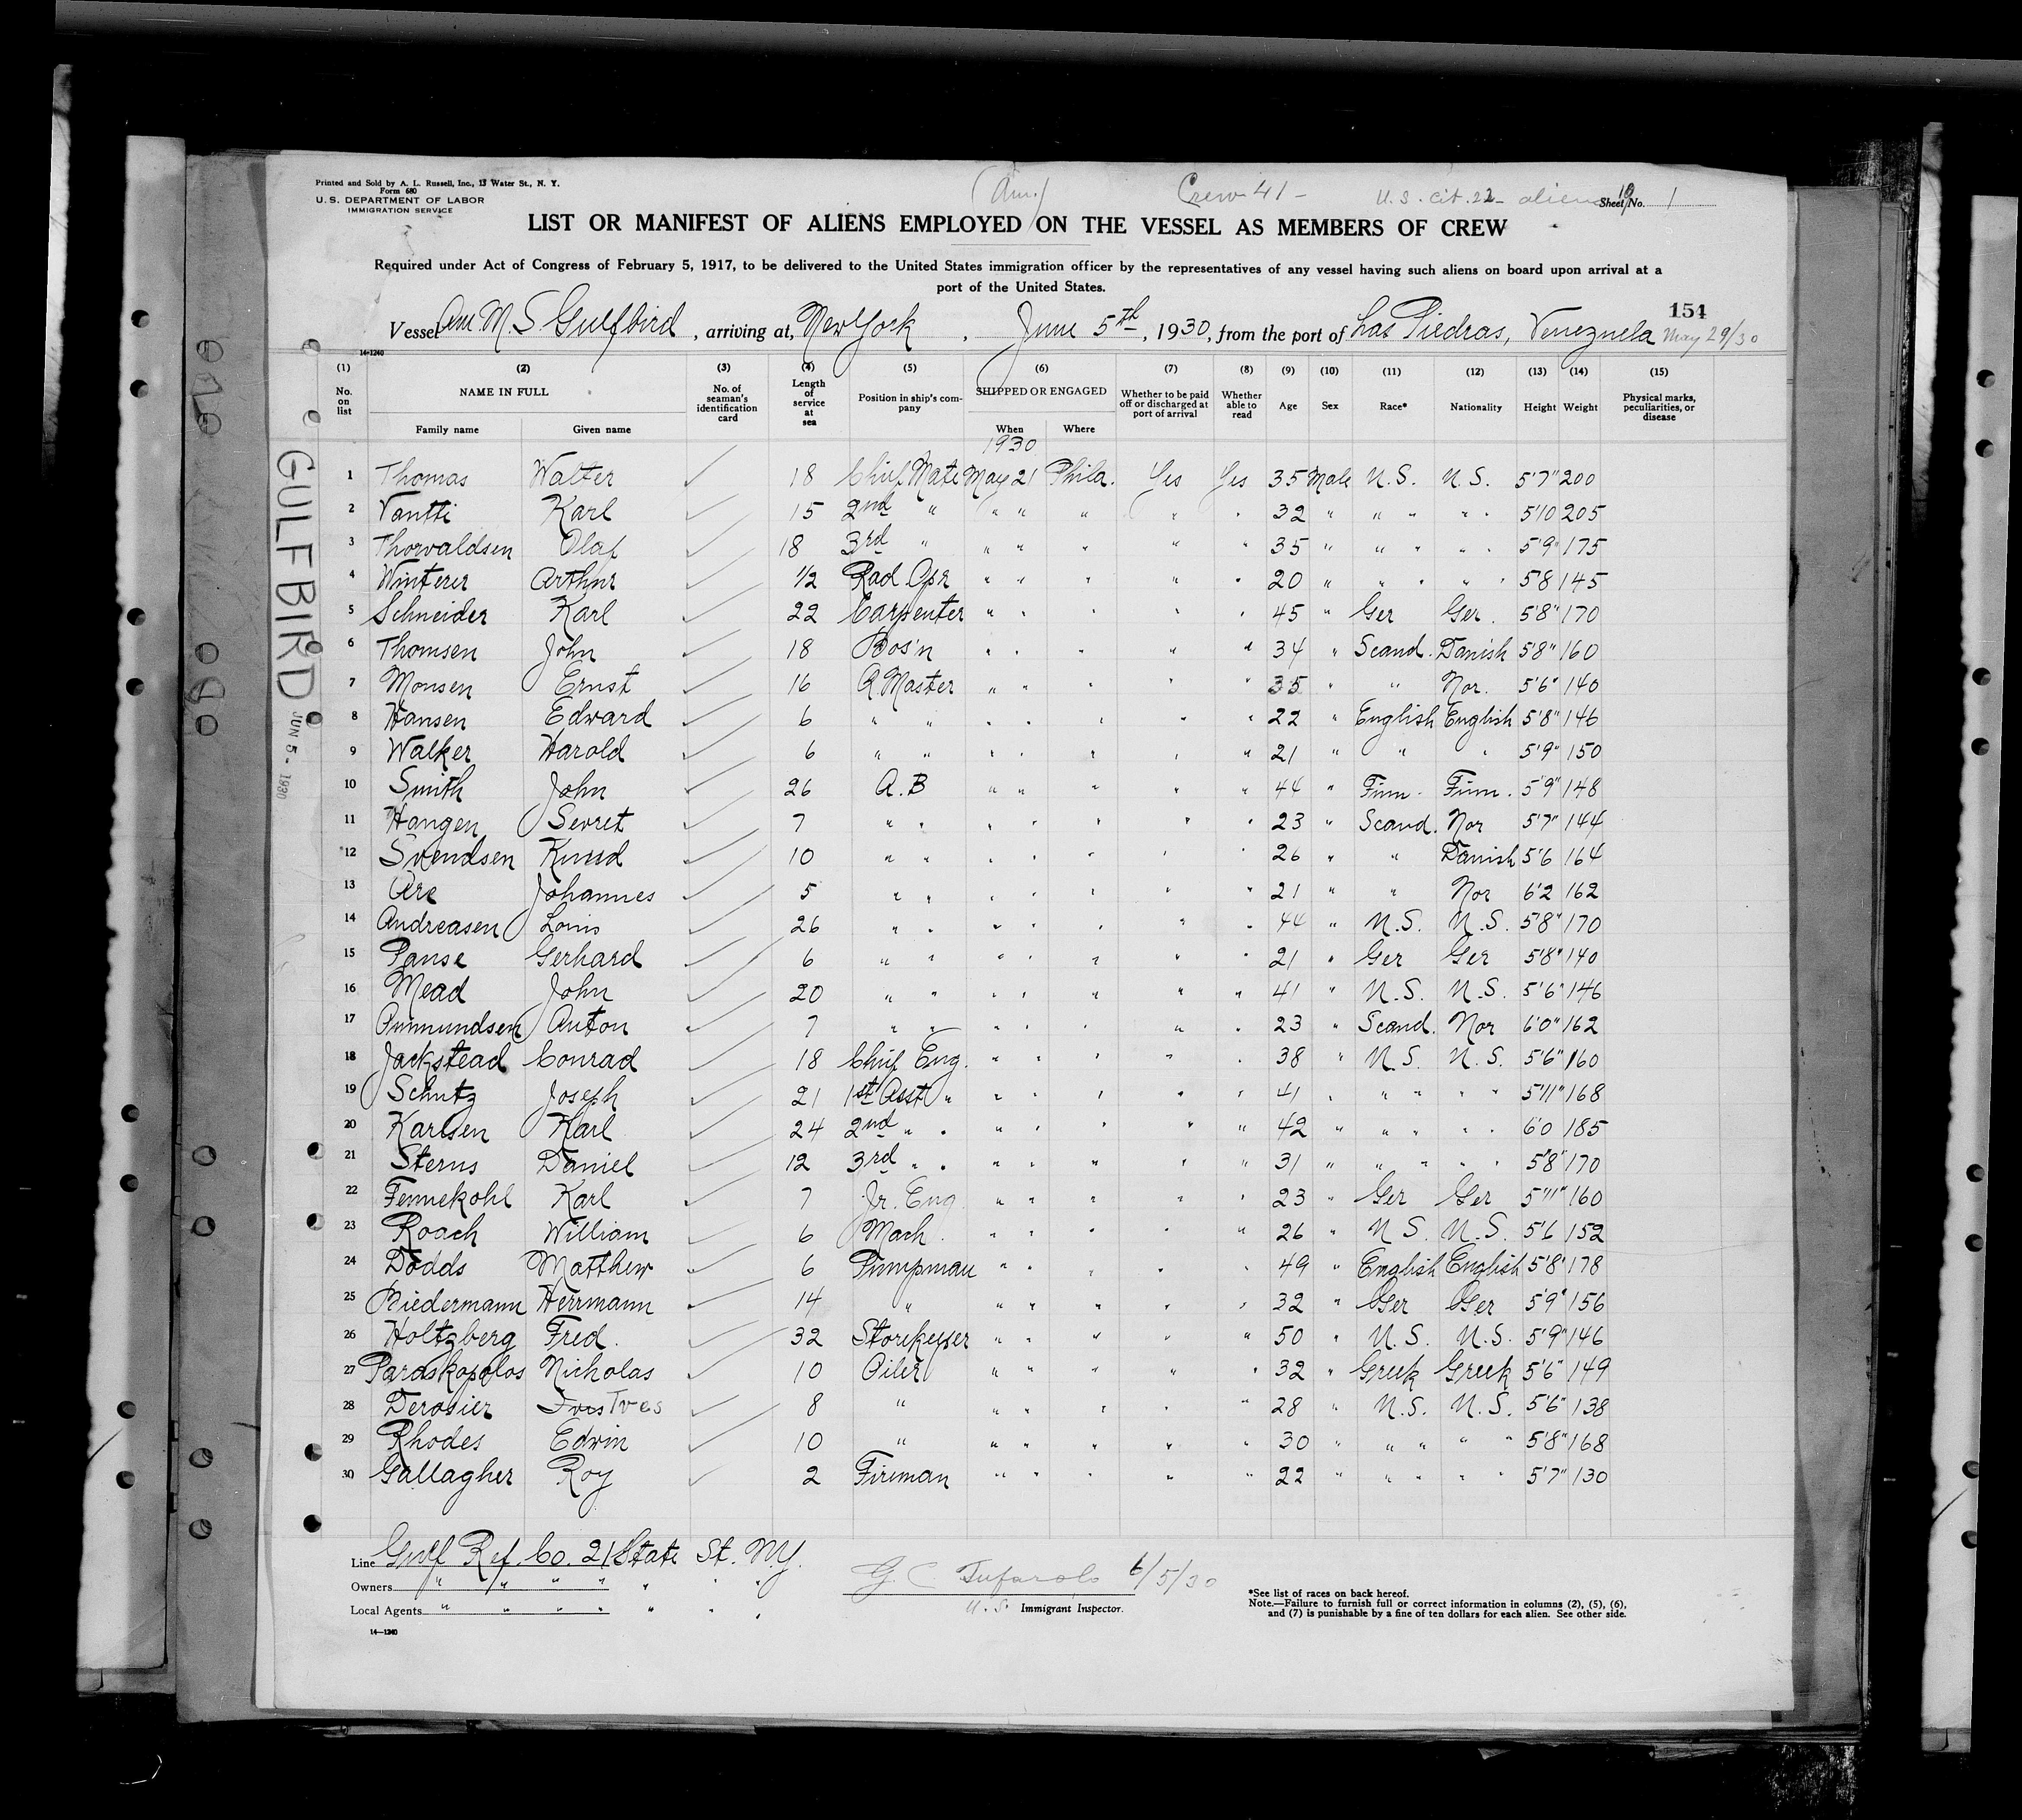 Printed and Sold by A. L. Russell, Inc., 13 Water St., N. Y.
Form 680
U. S. DEPARTMENT OF LABOR
IMMIGRATION SERVICE
(Am.) Crew 41 - U.S. cit. 22 - aliens 19 Sheet No. 1
LIST OR MANIFEST OF ALIENS EMPLOYED ON THE VESSEL AS MEMBERS OF CREW
Required under Act of Congress of February 5, 1917, to be delivered to the United States immigration officer by the representatives of any vessel having such aliens on board upon arrival at a
port of the United States.
154
Vessel Am. M. S. Gulfbird, arriving at, New York, June 5th, 1930, from the port of Las Piedras, Venezuela May 29/30
14-1240
(1) (2) (3) (4) (5) (6) (7) (8) (9) (10) (11) (12) (13) (14) (15)
No. on list NAME IN FULL No. of seaman's identification card Length of service at sea Position in ship's company SHIPPED OR ENGAGED Whether to be paid off or discharged at port of arrival Whether able to read Age Sex Race* Nationality Height Weight Physical marks, peculiarities, or disease
Family name Given name When Where
1930
1 Thomas Walter ✓ 18 Chief Mate May 21 Phila. Yes Yes 35 Male U.S. U.S. 5'7" 200
2 Vantti Karl ✓ 15 2nd " " " " " " 32 " " " " " 5'10 205
3 Thorvaldsen Olaf ✓ 18 3rd " " " " " " 35 " " " " " 5'9" 175
4 Winterer Arthur ✓ 1/2 Rad Opr " " " " " 20 " " " " " 5'8 145
5 Schneider Karl ✓ 22 Carpenter " " " " " 45 " Ger Ger. 5'8" 170
6 Thomsen John ✓ 18 Bos'n " " " " " 34 " Scand. Danish 5'8" 160
7 Monsen Ernst ✓ 16 Q Master " " " " " 35 " " Nor. 5'6" 140
8 Hansen Edward ✓ 6 " " " " " " " 22 " English English 5'8" 146
9 Walker Harold ✓ 6 " " " " " " " 21 " " " 5'9" 150
10 Smith John ✓ 26 A.B " " " " " 44 " Finn. Finn. 5'9" 148
11 Haugen Sevret ✓ 7 " " " " " " " 23 " Scand. Nor 5'7" 144
12 Svendsen Knud ✓ 10 " " " " " " " 26 " " Danish 5'6 164
13 Are Johannes ✓ 5 " " " " " " " 21 " " Nor 6'2 162
14 Andreasen Louis ✓ 26 " " " " " " " 44 " U.S. U.S. 5'8" 170
15 Panse Gerhard ✓ 6 " " " " " " " 21 " Ger Ger 5'8" 140
16 Mead John ✓ 20 " " " " " " " 41 " U.S. U.S. 5'6" 146
17 Anton ✓ 7 " " " " " " " 23 " Scand. Nor 6'0" 162
18 Jackstead Conrad ✓ 18 Chief Eng. " " " " " 38 " U.S. U.S. 5'6" 160
19 Schutz Joseph ✓ 21 1st Asst " " " " " " 41 " " " " " 5'11" 168
20 Karlsen Karl ✓ 24 2nd " " " " " " " 42 " " " " " 6'0 185
21 Sterns Daniel ✓ 12 3rd " " " " " " " 31 " " " " " 5'8" 170
22 Fennekohl Karl ✓ 7 Jr. Eng " " " " " 23 " Ger Ger 5'11" 160
23 Roach William ✓ 6 Mach. " " " " " 26 " U.S. U.S. 5'6 152
24 Dodds Matthew ✓ 6 Pumpman " " " " " 49 " English English 5'8" 178
25 Riedermann Herrmann ✓ 14 " " " " " " 32 " Ger Ger 5'9" 156
26 Holtzberg Fred. ✓ 32 Storekeeper " " " " " 50 " U.S. U.S. 5'9" 146
27 Paraskopolos Nicholas ✓ 10 Oiler " " " " " 32 " Greek Greek 5'6" 149
28 Derosier Ives ✓ 8 " " " " " " 28 " U.S. U.S. 5'6" 138
29 Rhodes Edwin ✓ 10 " " " " " " 30 " " " " " 5'8" 168
30 Gallagher Roy ✓ 2 Fireman " " " " " 22 " " " " " 5'7" 130
GULFBIRD JUN 5 - 1930
Line Gulf Ref. Co. 21 State St. N.Y.
Owners " " " " " " "
Local Agents " " " " " " "
14-1240
G. C. Tufarolo 6/5/30
U.S. Immigrant Inspector.
*See list of races on back hereof.
Note.—Failure to furnish full or correct information in columns (2), (5), (6),
and (7) is punishable by a fine of ten dollars for each alien. See other side.